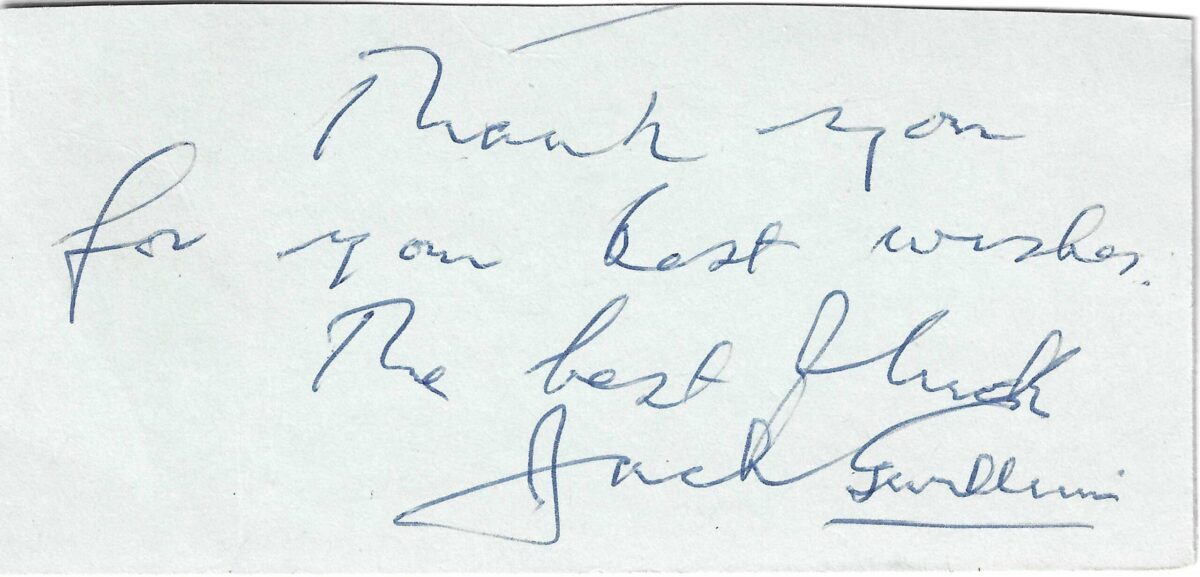 Thank you
for your best wishes.
The best of luck
Jack Gwillim